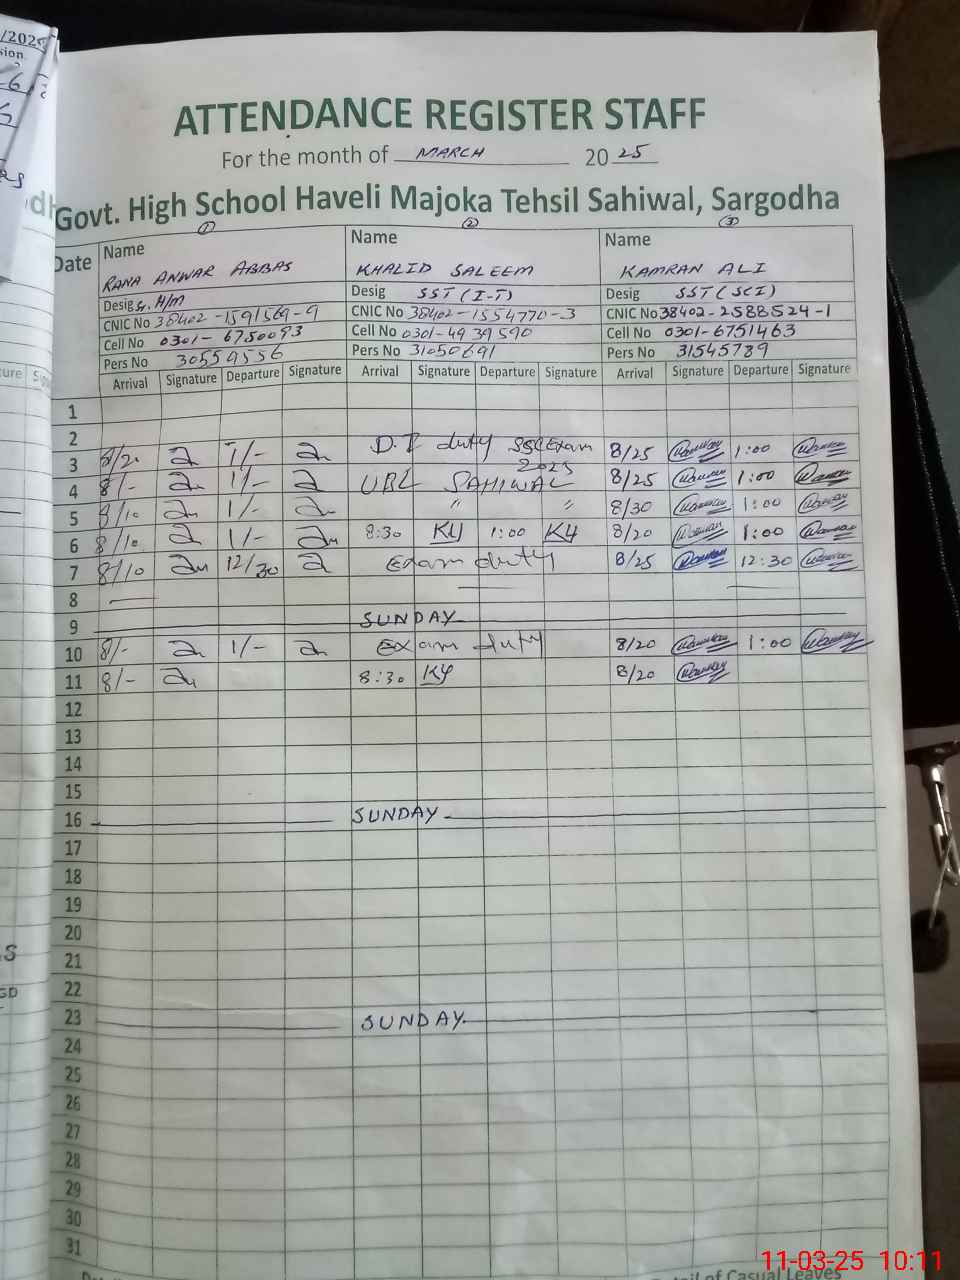 /2025
sion
ATTENDANCE REGISTER STAFF
For the month of MARCH 20 25
Govt. High School Haveli Majoka Tehsil Sahiwal, Sargodha
① ② ③
Date Name Name Name
RANA ANWAR ABBAS KHALID SALEEM KAMRAN ALI
Desig Sr. H/M Desig SST (I-T) Desig SST (SCI)
CNIC No 38402-1591569-9 CNIC No 38402-1554770-3 CNIC No 38402-2588524-1
Cell No 0301-6750093 Cell No 0301-4939590 Cell No 0301-6751463
Pers No 30559556 Pers No 31050691 Pers No 31545789
Arrival Signature Departure Signature Arrival Signature Departure Signature Arrival Signature Departure Signature
1
2
3 8/20 1/- D.I duty SSC Exam 2025 8/25 1:00
4 8/- 1/- UBL SAHIWAL 8/25 1:00
5 8/10 1/- " " 8/30 1:00
6 8/10 1/- 8:30 KY 1:00 KY 8/20 1:00
7 8/10 12/30 Exam duty 8/25 12:30
8
9 SUNDAY
10 8/- 1/- Exam duty 8/20 1:00
11 8/- 8:30 KY 8/20
12
13
14
15
16 SUNDAY
17
18
19
20
21
22
23 SUNDAY
24
25
26
27
28
29
30
31
11-03-25 10:11
Detail of Casual Leaves